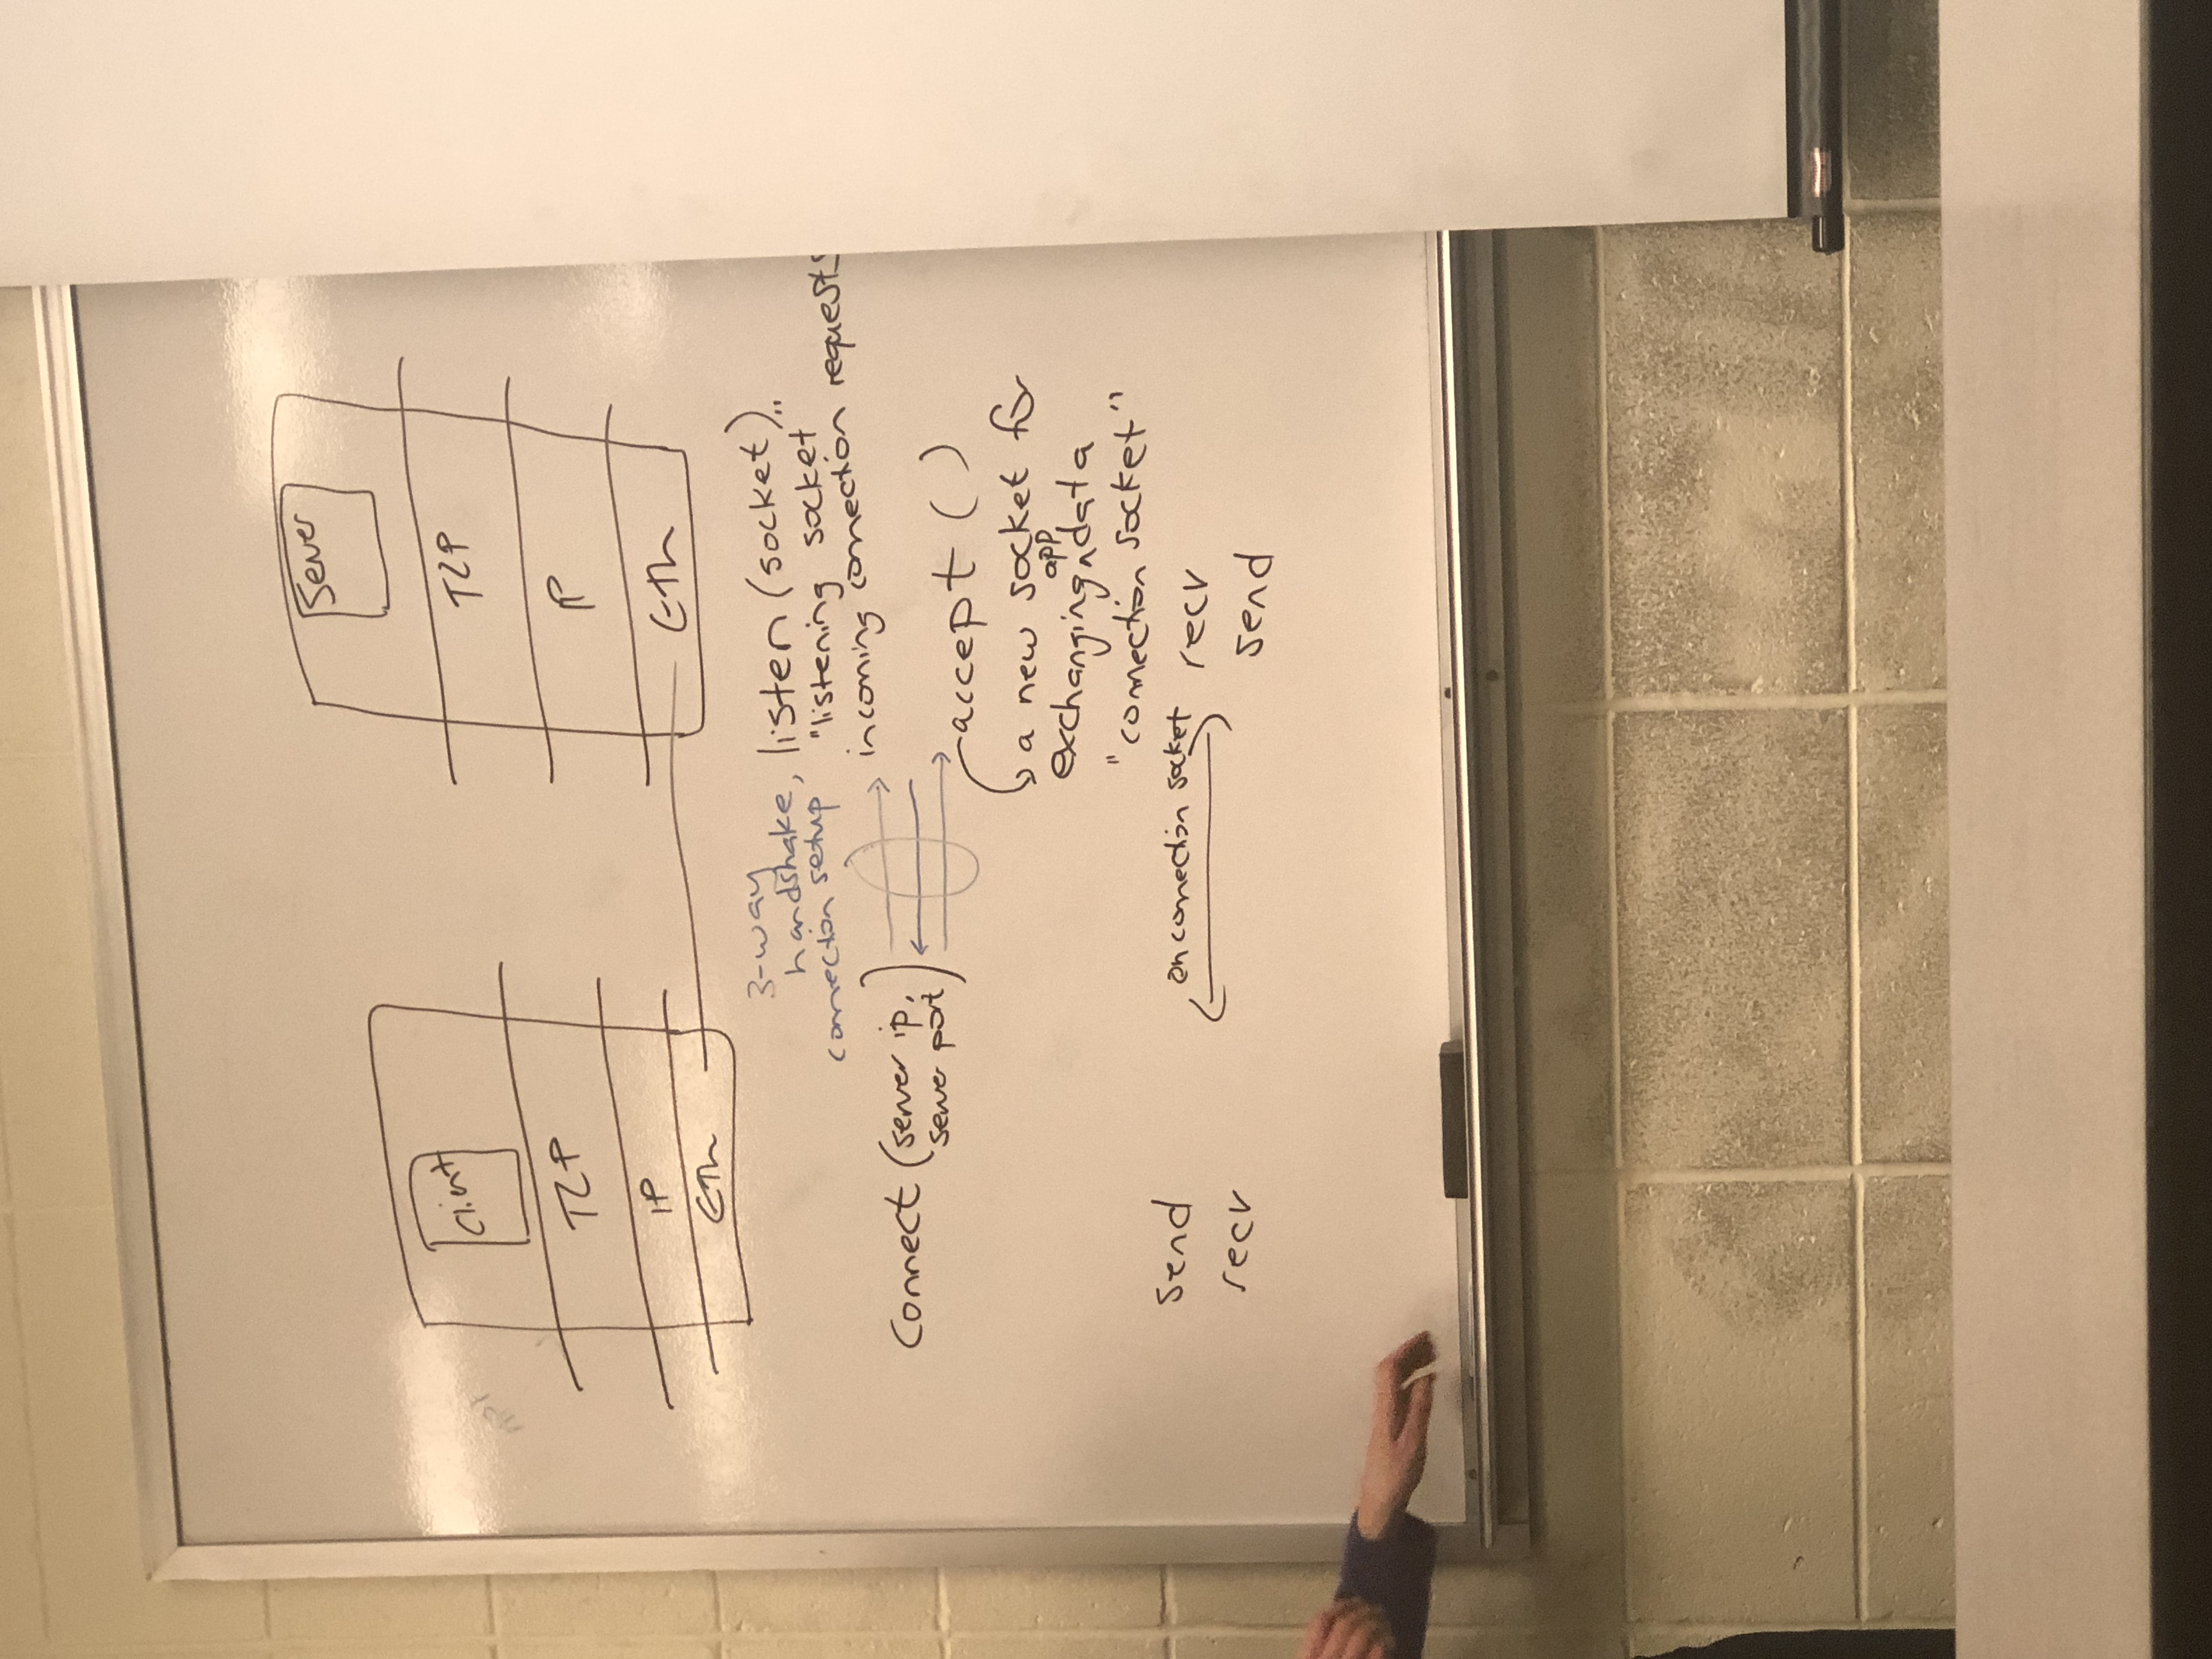 Server
TCP
IP
Eth
Client
TCP
IP
Eth
3-way
handshake,
connection setup
listen (socket)
"listening socket"
incoming connection requests
Connect (server ip,
server port)
accept ( )
a new socket for
exchanging app data
"connection socket"
send
recv
on connection socket
recv
send